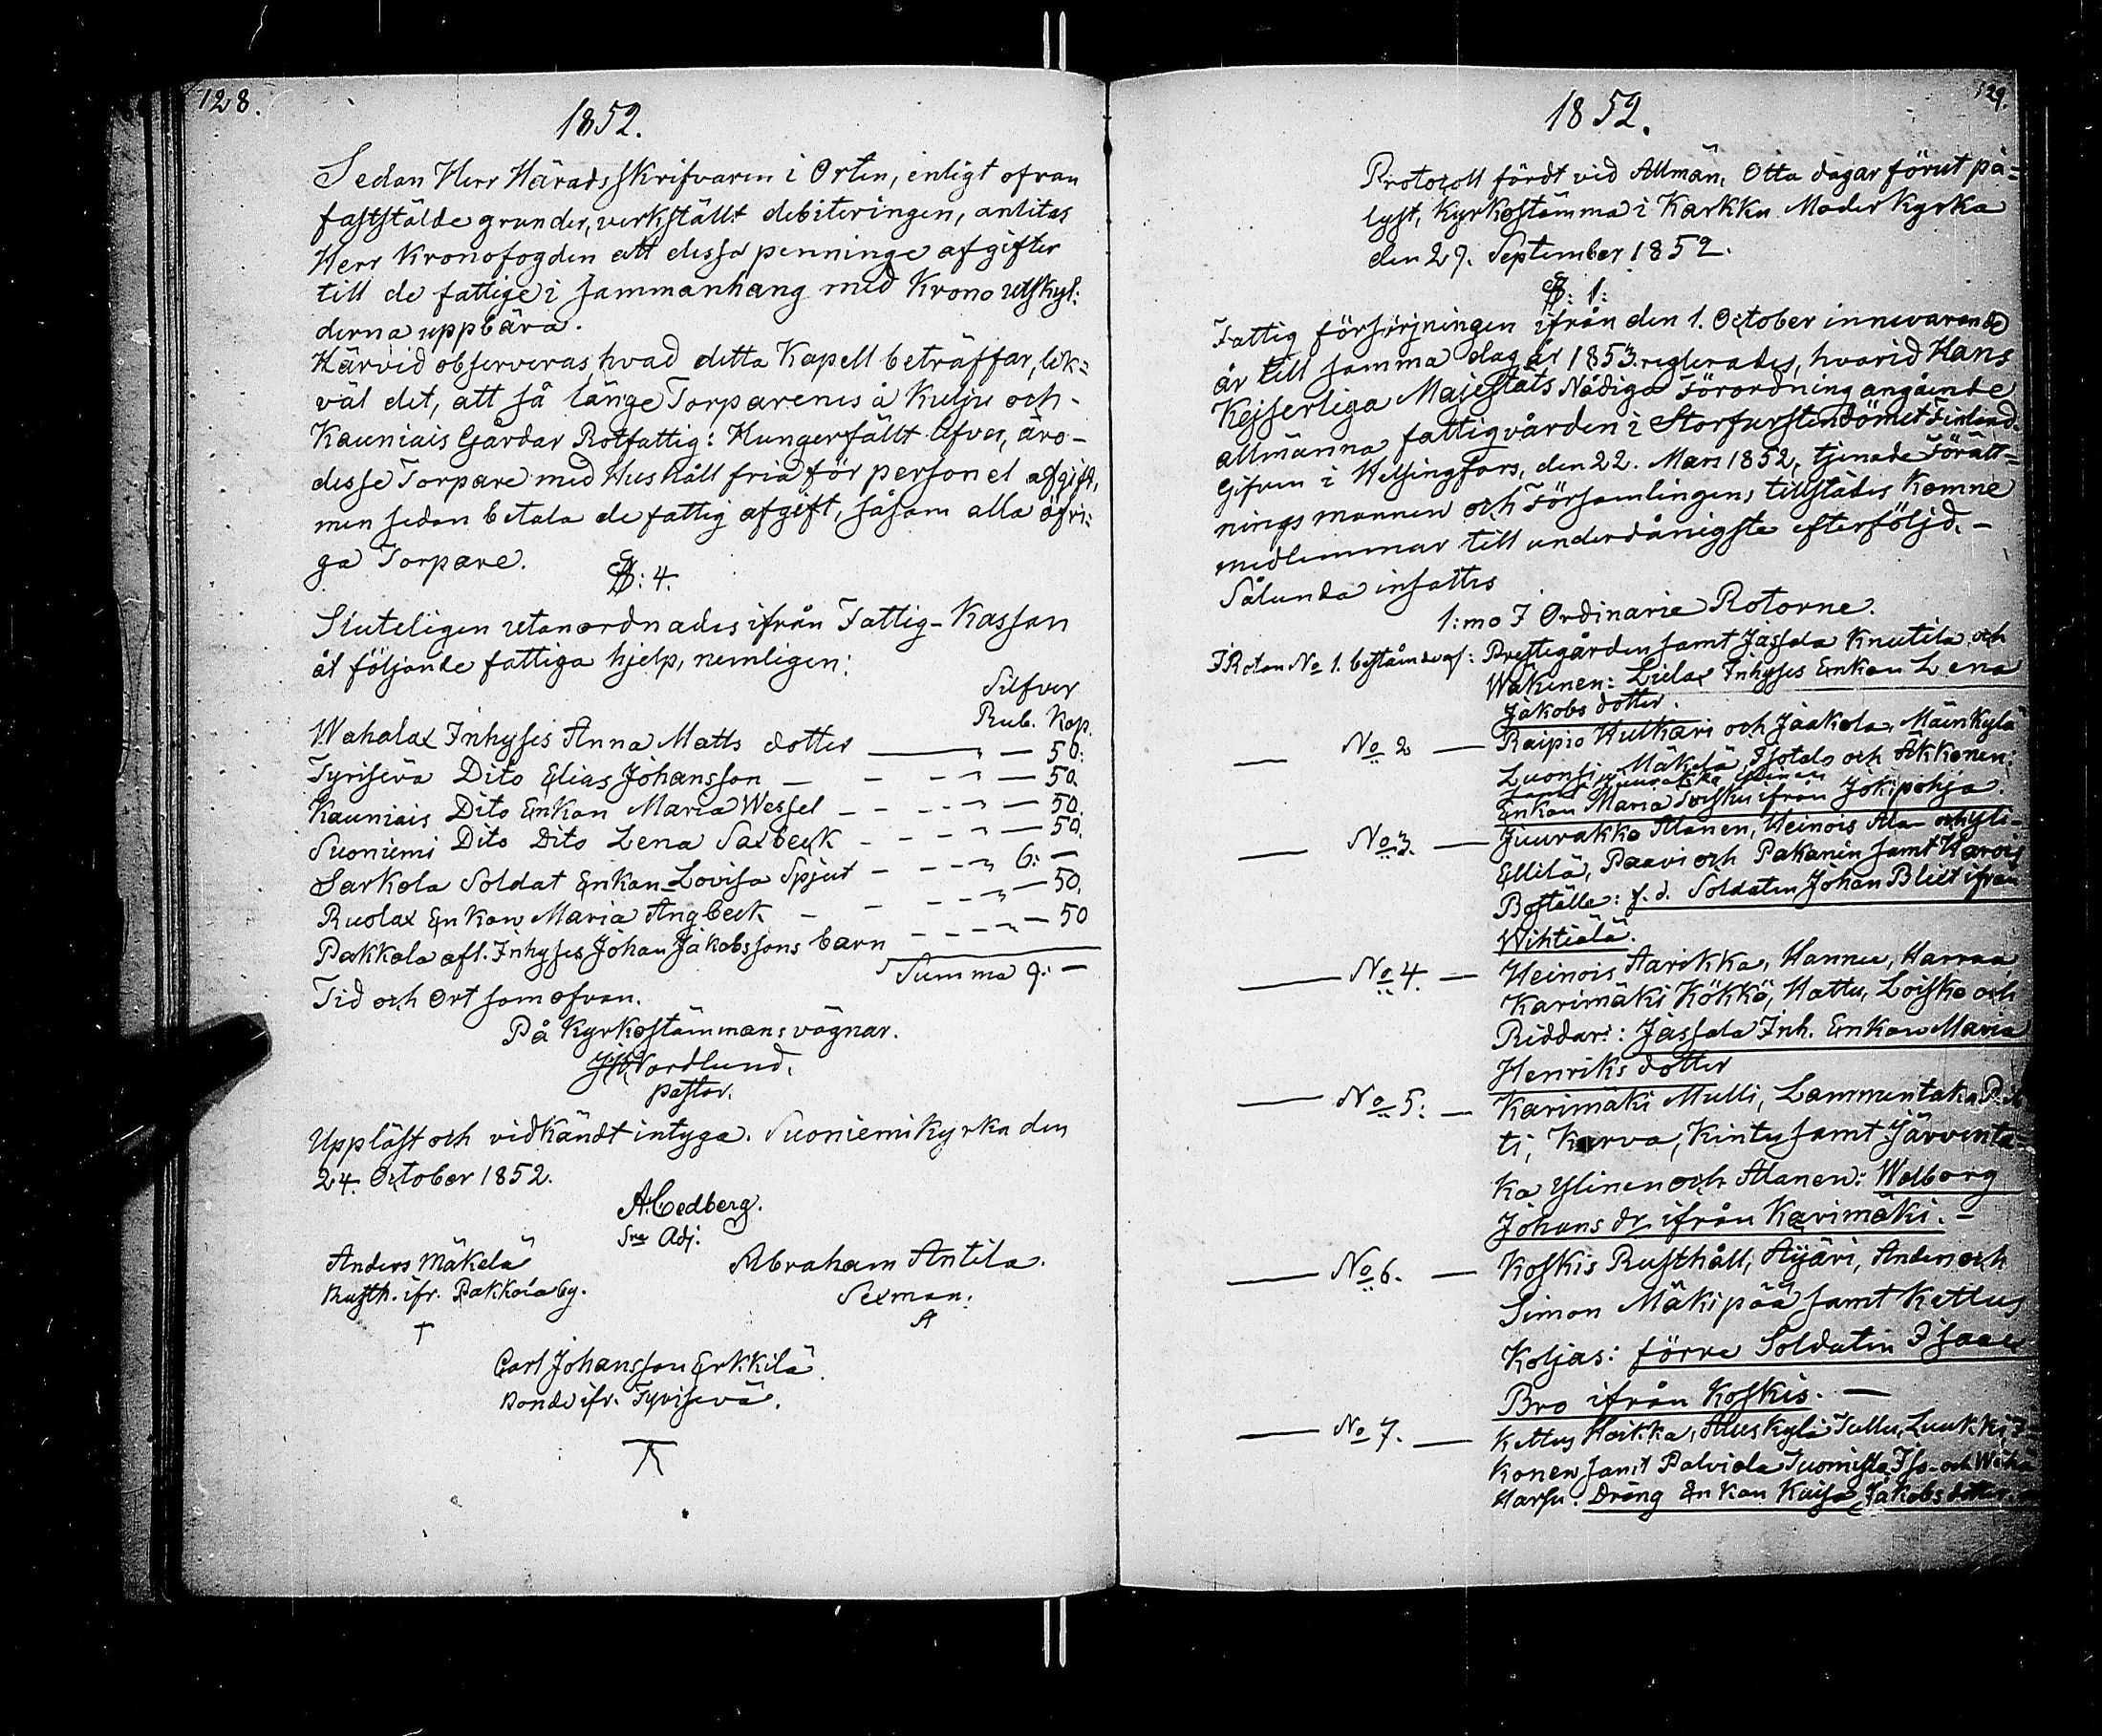 128.
1852.
Sedan Herr Häradsskrifvaren i Orten, enligt ofvan
faststälde grunder, verkställt debiteringen, anlitas
Herr Kronofogden att dessa penninge afgifter
till de fattige i sammanhang med Krono utskyl:
derna uppbära.
Härvid observeras, hvad detta Kapell beträffar, lik=
väl det, att så länge Torparenes å Kulju och-
Kauniais Gårdar Rotfattig: Hungerfällt lefver, äro-
desse Torpare med Hushåll fria för personel afgift,
men sedan betala de fattig afgift, såsom alla öfri:
ga Torpare.
§: 4.
Sluteligen utanordnades ifrån Fattig-Kassan
åt följande fattiga hjelp, nemligen:
Silfver
Rub. Kop.
Wahalax Inhyses Anna Matts dotter — — 50:
Tyrisevä Dito Elias Johansson — — 50.
Kauniais Dito Enkan Maria Wessel — — 50.
Suoniemi Dito Dito Lena Saxbeck — — 50.
Sarkola Soldat Enkan Lovisa Spjut — 6: —
Ruolax Enkan Maria Angbeck — — 50.
Pakkala afl. Inhyses Johan Jakobssons barn — — 50
Summa 9: —
Tid och Ort som ofvan.
På Kyrkostämmans vägnar.
Nordlund.
Pastor.
Uppläst och vidkändt intyga. Suoniemi kyrka den
24. October 1852.
A. Cedberg.
Sre Adj.
Anders Mäkelä Abraham Antila.
Rusth. ifr. Pakkola by. Sexman.
Carl Johansson Erkkilä
Bonde ifr. Tyrisevä.
129.
1852.
Protocoll fördt vid Allmän, Otta dagar förut på=
lyst, Kyrkostämma i Karkku Moder Kyrka
den 29. September 1852.
§: 1:
Fattig försörjningen ifrån den 1. October innevarande
år till samma dag år 1853. reglerades, hvarvid Hans
Kejserliga Majestäts Nådiga Förordning angående
allmänna fattigvården i Storfurstendömet Finland.
Gifven i Helsingfors, den 22. Mars 1852, tjenade Förätt=
ningsmannen och Församlingens tillstädes komne
medlemmar till underdånigste efterföljd. -
Sålunda insattes
1:mo I Ordinarie Rotorne.
I Rotan No 1. bestående af: Prestegården samt Jassala Knutila och
Wäkinen: Lielax Inhyses Enkan Lena
Jakobs dotter.
— No 2 — Raipio Hulkari och Jaakola, Mäenkylä
Luonsi, Mäkelä, Isotalo och Äkkönen:
Enkan Maria ifrån Jokipohja.
— No 3. — Juurakko Alanen, Heinois Ala- och Yli-
Ellilä, Paavi och Pakanen samt Harois
Boställe: f. d. Soldaten Johan Blixt ifrån
Wihtiälä.
— No 4. — Heinois Aarikka, Hannu, Harraa
Karimäki Kökkö, Hattu, Loisko och
Riddari: Jassala Inh. Enkan Maria
Henriks dotter
— No 5: — Karimäki Mulli, Lammentaka
ti, Karva, Kintu samt Järventa-
ka Ylinen och Alanen: Walborg
Johans dr. ifrån Karimäki. -
— No 6. — Koskis Rusthåll, Äijäri, Anden och
Simon Mäkipää samt Kettus
Koljas: förre Soldaten Isaac
Bro ifrån Koskis. —
— No 7. — Kettus Hoikka, Aluskylä Tullu, Luukki
Konen samt Palviala Tuomista Iso- och Wähä
Harsu: Dräng Enkan Kaisa Jakobs dotter